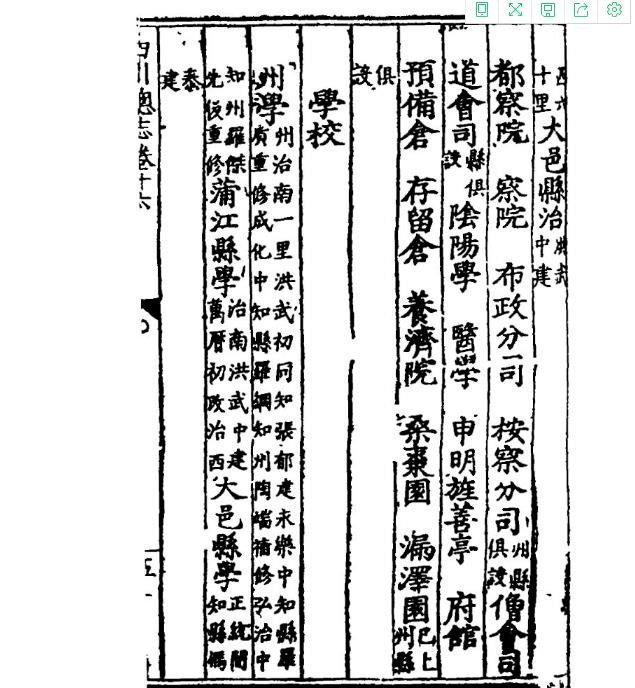 西六十里大邑縣治洪武中建
都察院 察院 布政分司 按察分司州縣俱設僧會司
道會司縣俱設陰陽學 醫學 申明旌善亭 府館
預備倉 存留倉 養濟院 桑棗園 漏澤園已上州縣
俱設
學校
州學州治南一里洪武初同知張郁建永樂中知縣羅重修成化中知縣羅綱知州陶端補修弘治中
知州羅傑先後重修蒲江縣學治南洪武中建萬曆初改治西大邑縣學正統間知縣馮
泰建
四川總志卷十六
五